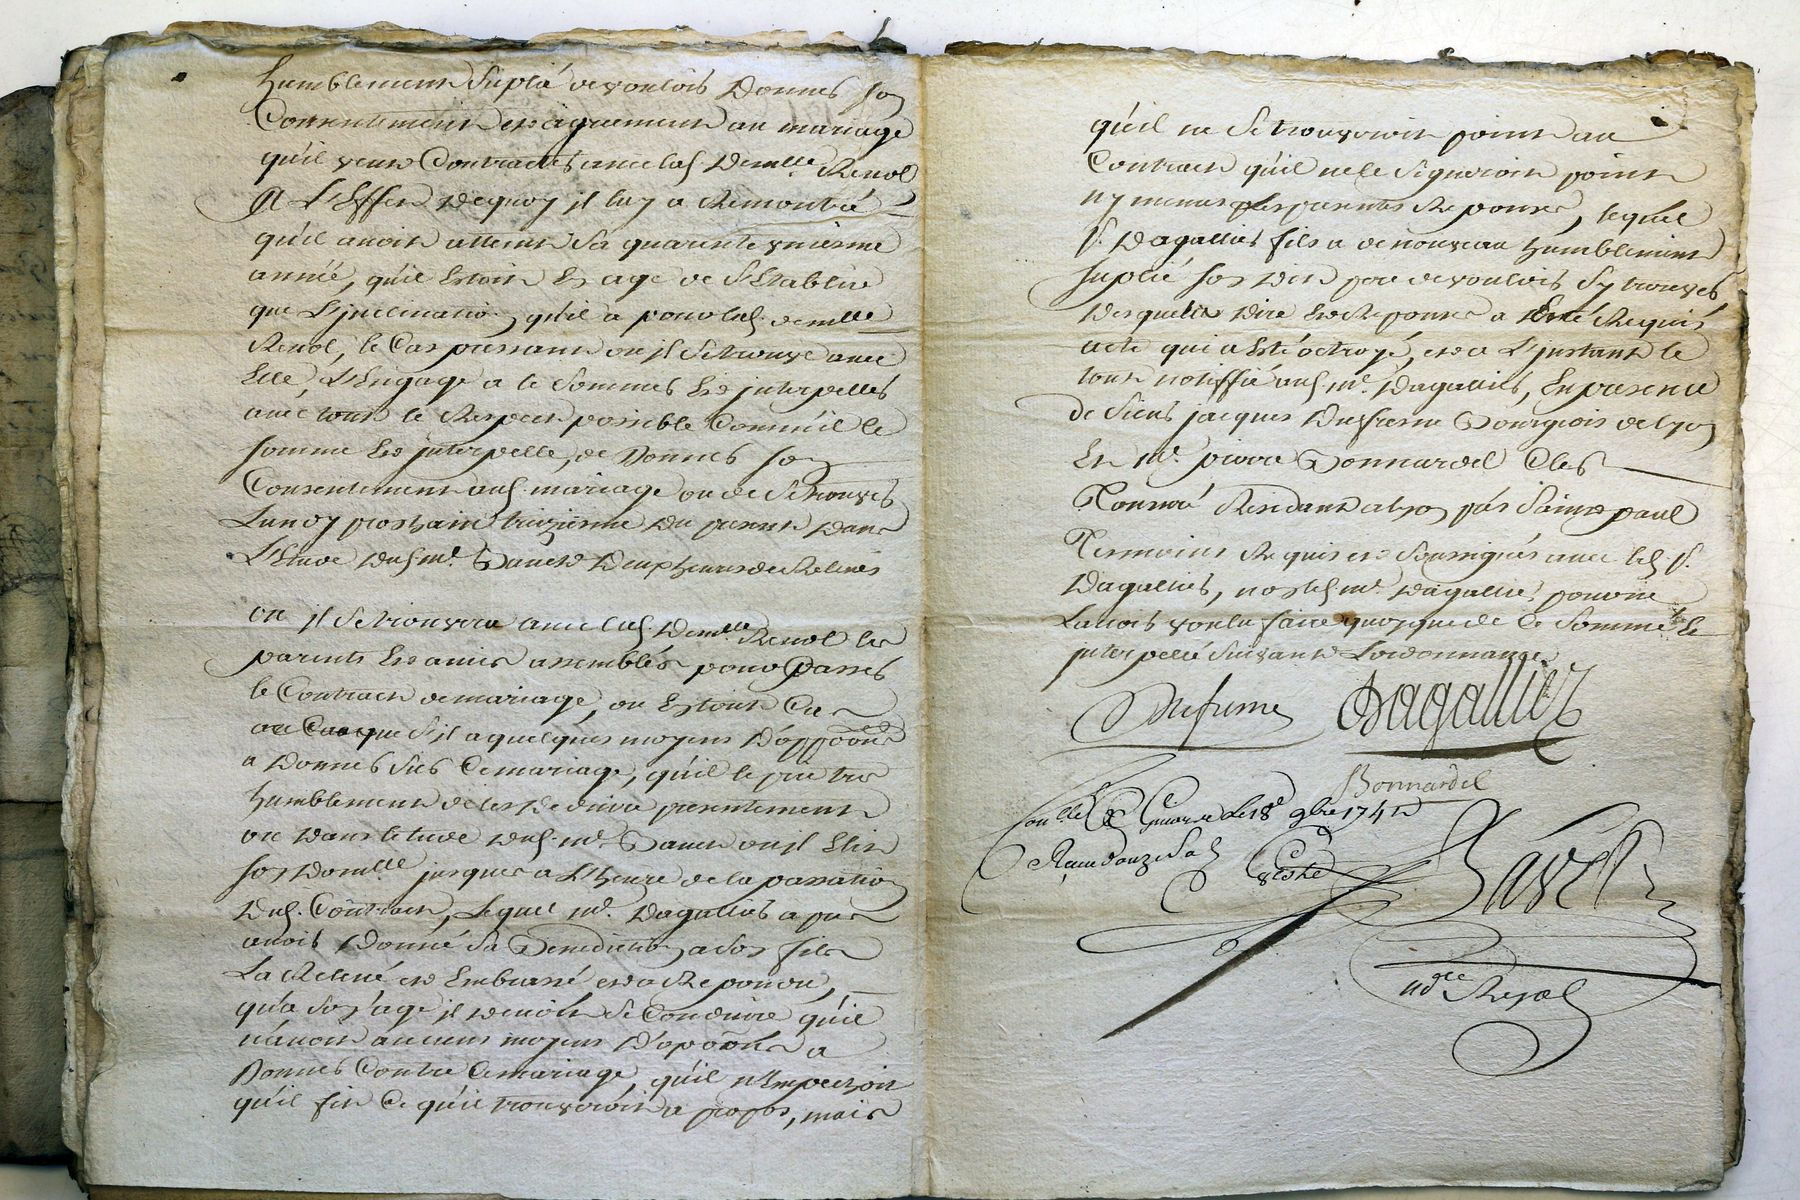 humblement suplié de vouloir donner son
Consentement et agrement au mariage
qu'il veut Contracter avec lad. demlle. Renol
A L'Effet dequoy il luy a Remontré
qu'il avoit atteint sa quarente uniesme
année, qu'il Estoit En age de S'Etablir
que L'jnclination qu'il a pour lad. demlle
Renol, le Cas pressant ou il Se trouve avec
Elle, L'Engage a le Sommer Et jnterpeller
avec tout le Respect possible Comm'il le
somme Et jnterpelle, de donner son
Consentement aud. mariage ou de Se trouver
Lundy prochain treizieme du present dans
L'Etude dud. me. Davet deux heures de Relevée
ou il Se trouvera avec lad. demlle Renol les
parents Et amis assemblés pour passer
le Contract de mariage, ou En tout Cas
ou Cas que S'il a quelques moyens D'oppoons
a donner sur Ce mariage, qu'il le prie tres
humblement de les deduire presentement
ou dans letude dud. me. Davet ou il Elit
son domlle jusques a L'heure de la passation
dud. Contract, Lequel me. Dagallier apres
avoir donné Sa Benediction a son fils
La Relevé et Embrassé et a Repondu,
qu'a son age il devoit Se Conduire qu'il
n'avoit aucuns moyens D'opoons a
donner Contre Ce mariage, qu'il n'Empechoit
qu'il fit Ce qu'il trouveroit a propos, mais
qu'il ne Se trouveroit point au
Contract qu'il ne le Signeroit point
ny mesmes les presentes Reponses, lequel
sr. Dagallier fils a de nouveau humblement
suplié son dit pere de vouloir S'y trouver
desquelles dire Et Reponses a Eté Requis
acte qui a Eté octroyé, et a L'jnstant le
tout notiffié aud. me. Dagallier, En presence
de Sieur jacques Dufresne Bourgeois de Lyon
Et me. pierre Bonnardel Clerc
Tonsuré Residant a Lyon psse Saint paul
Temoins Requis et soussignés avec led. sr.
Dagallier, non led. me. Dagallier pour ne
Lavoir voulu faire quoyque de Ce Sommé Et
jnterpellé Suivant Lordonnance
Dufresne Dagallier
Bonnardel
Le 18e 9bre 1741
Recu douze sols
Davet
nore Royal